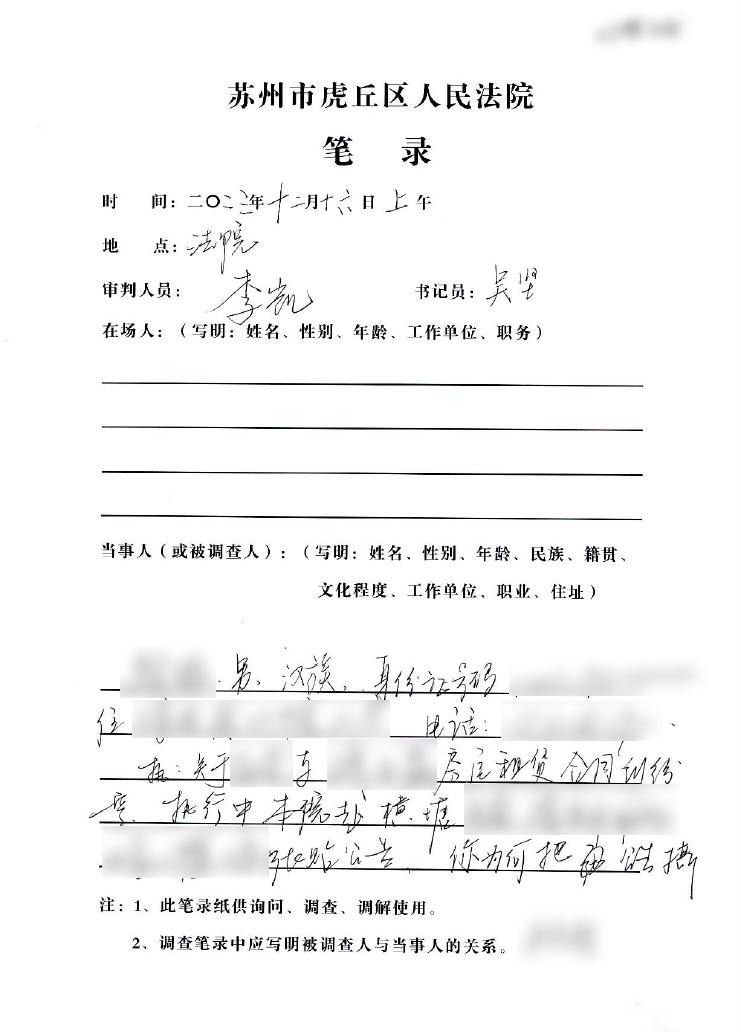 苏州市虎丘区人民法院
笔 录
时 间：二〇二三年十二月十六日 上午
地 点：法院
审判人员：李凯 书记员：吴坚
在场人：（写明：姓名、性别、年龄、工作单位、职务）
当事人（或被调查人）：（写明：姓名、性别、年龄、民族、籍贯、
文化程度、工作单位、职业、住址）
男、汉族，身份证号码
住 电话：
执：关于 与 房屋租赁合同纠纷
案，执行中本院赴横塘
张贴公告，你为何把 公告撕
注：1、此笔录纸供询问、调查、调解使用。
2、调查笔录中应写明被调查人与当事人的关系。